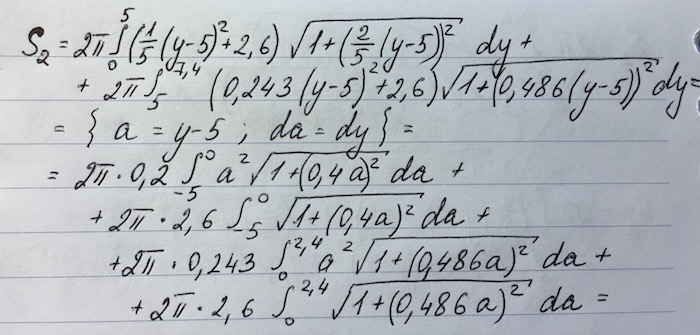 S₂ = 2π ∫₀⁵ (1/5 (y-5)² + 2,6) √(1+(2/5 (y-5))²) dy +
+ 2π ∫₅^7,4 (0,243 (y-5)² + 2,6) √(1+(0,486 (y-5))²) dy =
= { a = y-5 ; da = dy } =
= 2π · 0,2 ∫₋₅⁰ a² √(1+(0,4a)²) da +
+ 2π · 2,6 ∫₋₅⁰ √(1+(0,4a)²) da +
+ 2π · 0,243 ∫₀^2,4 a² √(1+(0,486a)²) da +
+ 2π · 2,6 ∫₀^2,4 √(1+(0,486a)²) da =